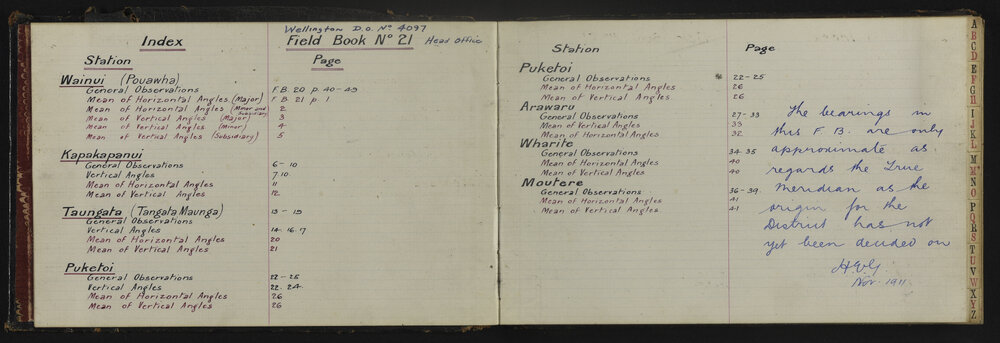 Wellington D.O. Nº 4097
Index Field Book Nº 21 Head Office
Station Page
Wainui (Pouawha)
General Observations F.B. 20 p. 40-49
Mean of Horizontal Angles (Major) F.B. 21 p. 1
Mean of Horizontal Angles (Minor and Subsidiary) 2
Mean of Vertical Angles (Major) 3
Mean of Vertical Angles (Minor) 4
Mean of Vertical Angles (Subsidiary) 5
Kapakapanui
General Observations 6-10
Vertical Angles 7.10.
Mean of Horizontal Angles 11
Mean of Vertical Angles 12
Taungata (Tangata Maunga) 13-19
General Observations
Vertical Angles 14.16.17
Mean of Horizontal Angles 20
Mean of Vertical Angles 21
Puketoi
General Observations 22-25
Vertical Angles 22.24.
Mean of Horizontal Angles 26
Mean of Vertical Angles 26
Station Page
Puketoi
General Observations 22-25
Mean of Horizontal Angles 26
Mean of Vertical Angles 26
Arawaru
General Observations 27-33
Mean of Vertical Angles 33
Mean of Horizontal Angles 32
Wharite
General Observations 34-35
Mean of Horizontal Angles 40
Mean of Vertical Angles 40
Moutere
General Observations 36-39.
Mean of Horizontal Angles 41
Mean of Vertical Angles 41
The bearings in
this F.B. are only
approximate as
regards the True
Meridian as the
origin for the
District has not
yet been decided on
Nov. 1911.
A
B
C
D
E
F
G
H
I
J
K
L
M
N
O
P
Q
R
S
T
U
V
W
X
Y
Z